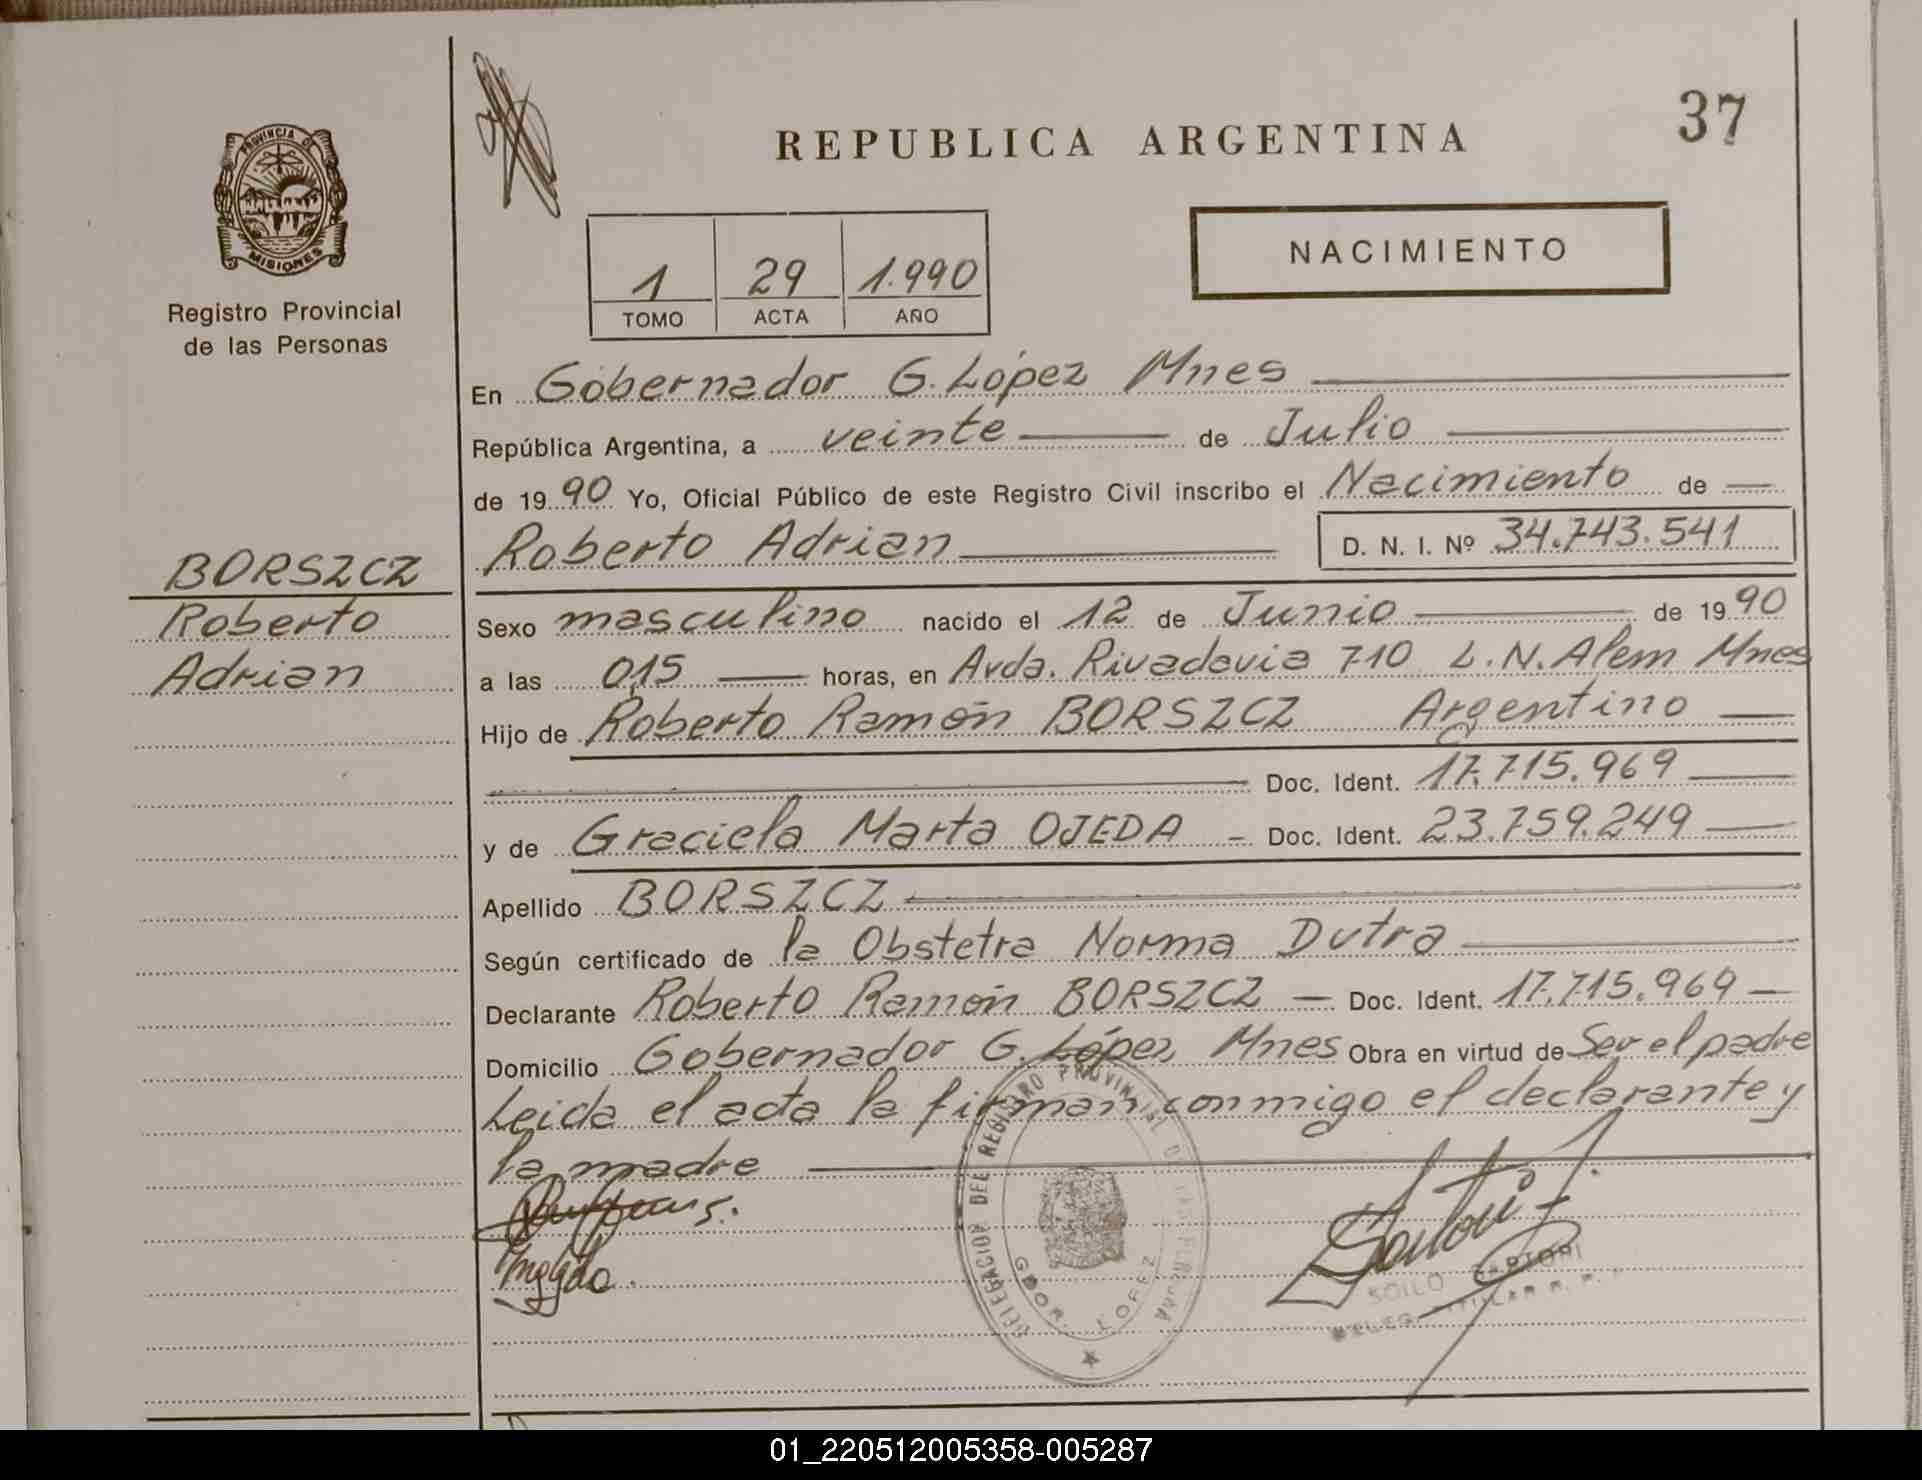 37
REPUBLICA ARGENTINA
PROVINCIA DE
MISIONES
NACIMIENTO
1 29 1.990
TOMO ACTA AÑO
Registro Provincial
de las Personas
En Gobernador G. López Mnes
República Argentina, a veinte de Julio
de 1990 Yo, Oficial Público de este Registro Civil inscribo el Nacimiento de
Roberto Adrian D. N. I. Nº 34.743.541
BORSZCZ
Roberto
Adrian
Sexo masculino nacido el 12 de Junio de 1990
a las 0,15 horas, en Avda. Rivadavia 710 L.N. Alem Mnes
Hijo de Roberto Ramón BORSZCZ Argentino
Doc. Ident. 17.715.969
y de Graciela Marta OJEDA - Doc. Ident. 23.759.249
Apellido BORSZCZ
Según certificado de la Obstetra Norma Dutra
Declarante Roberto Ramón BORSZCZ — Doc. Ident. 17.715.969 —
Domicilio Gobernador G. López, Mnes Obra en virtud de Ser el padre
Leida el acta la firman conmigo el declarante y
la madre
DELEGACION DEL REGISTRO PROVINCIAL DE LAS PERSONAS
GDOR. LOPEZ
SOILO SARTORI
01_220512005358-005287